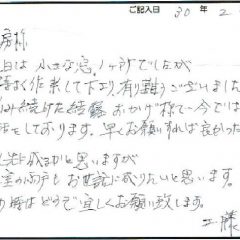 ご記入日 30 年 2
様
日は 小さな窓、1ヶ所でしたが
く作業して下さり、有り難うございました
続けた結果 おかげ様で今では
しております。早くお願いすれば良かった
に成るかと思いますが
室の雨戸もお世話に成りたいと思います。
の時はどうぞ宜しくお願い致します。
工藤